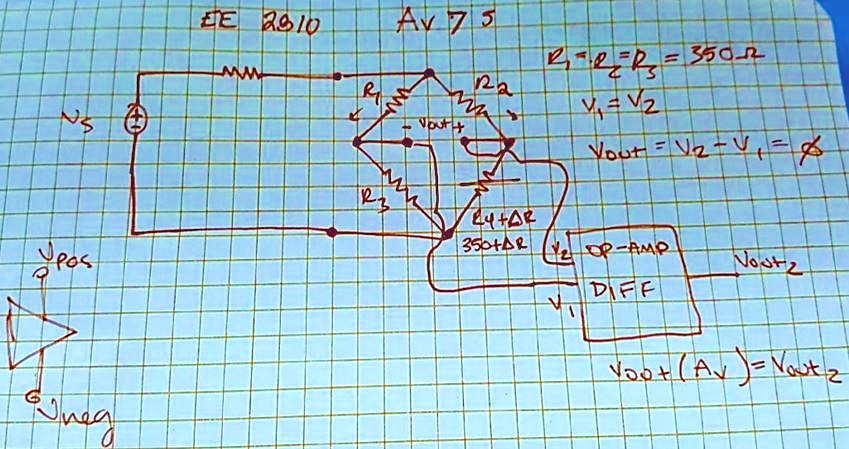 EE 2910 Av 75
R1 = R2 = R3 = 350Ω
V1 = V2
Vout = V2 - V1 = ∅
R1
R2
Vs
- Vout +
R3
R4+ΔR
350+ΔR
V2 OP-AMP
DIFF
V1
Vout2
Vout (Av) = Vout2
Vpos
Vneg